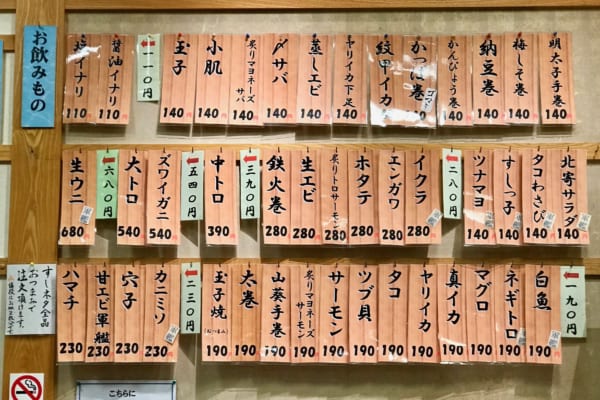 お飲みもの
明太子手巻 140
梅しそ巻 140
納豆巻 140
かんぴょう巻 140
かつお巻 140
紋甲イカ 140
ヤリイカ下足 140
蒸しエビ 140
〆サバ 140
炙りマヨネーズサバ 240
小肌 140
玉子 140
一一〇円
醤油イナリ 110
イナリ 110
北寄サラダ 140
タコわさび 140
すしっ子 140
ツナマヨ 140
二八〇円
イクラ 280
エンガワ 280
ホタテ 280
炙りトロサーモン 280
生エビ 280
鉄火巻 280
三九〇円
中トロ 390
五四〇円
ズワイガニ 540
大トロ 540
六八〇円
生ウニ 680
一九〇円
白魚 190
ネギトロ 190
マグロ 190
真イカ 190
ヤリイカ 190
タコ 190
ツブ貝 190
サーモン 190
炙りマヨネーズサーモン 190
山葵手巻 190
太巻 190
玉子焼 (おつまみ) 190
二三〇円
カニミソ 230
穴子 230
甘エビ軍艦 230
ハマチ 230
すしネタ全品
おつまみで
注文頂けます。
こちらに